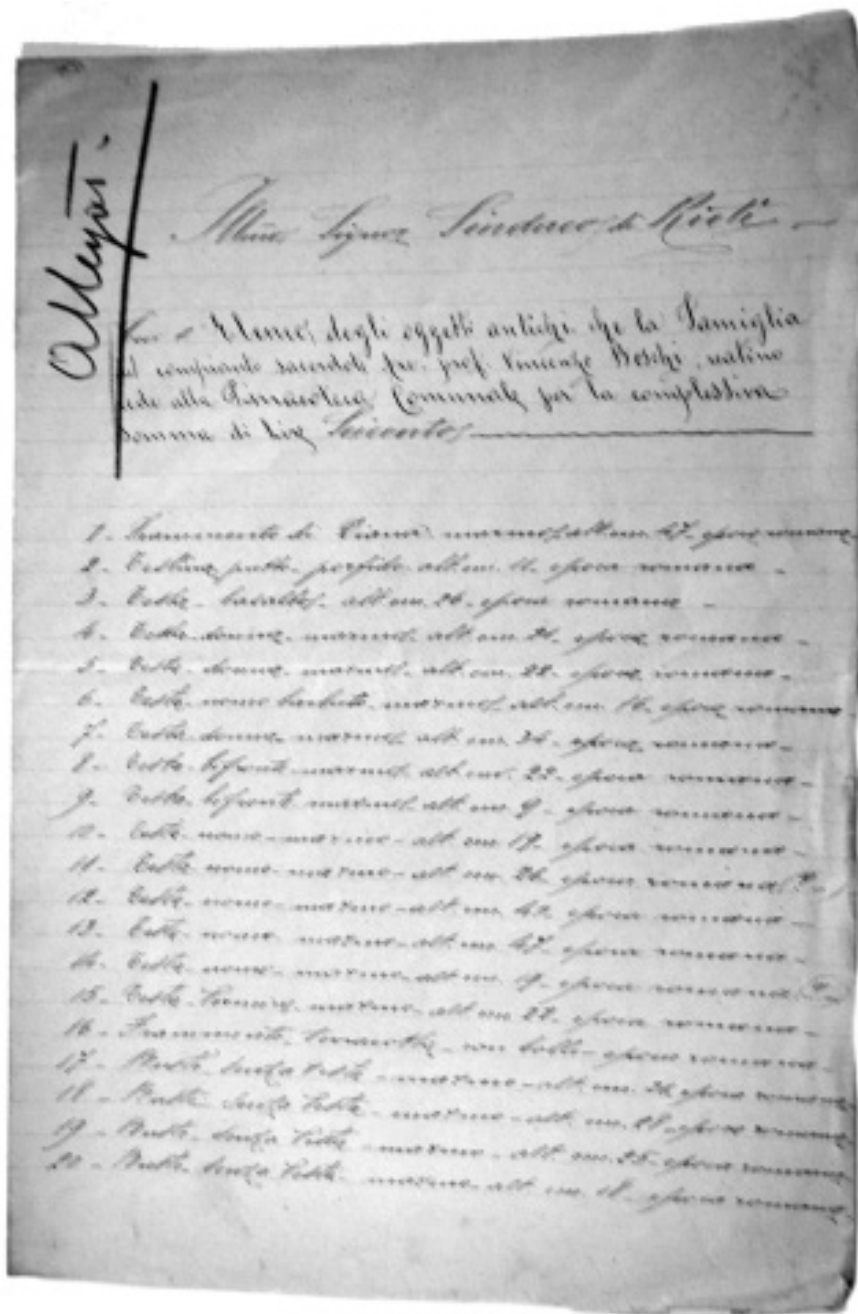 Allegati.
Illmo Signor Sindaco di Rieti
Elenco degli oggetti antichi che la Famiglia
del compianto sacerdote prof. Vincenzo Boschi, reatino
cede alla Pinacoteca Comunale per la complessiva
somma di Lire Seicento
1 - Frammento di Diana marmo alt. cm. 47 - epoca romana
2 - Testina putto - porfido alt. cm. 11 - epoca romana -
3 - Testa - basalto - alt. cm. 26 - epoca romana -
4 - Testa donna - marmo - alt. cm. - epoca romana -
5 - Testa - donna - marmo - alt. cm. 22 - epoca romana -
6 - Testa - uomo barbuto - marmo alt. cm. 16 - epoca romana -
7 - Testa donna - marmo alt. cm. 34 - epoca romana -
8 - Testa - bifronte - marmo alt. cm. 22 - epoca romana -
9 - Testa bifronte marmo alt. cm. 9 - epoca romana -
10 - Testa - uomo - marmo - alt. cm. 17 - epoca romana -
11 - Testa uomo - marmo - alt. cm. 26 epoca romana (?)
12 - Testa - uomo - marmo - alt. cm. epoca romana -
13 - Testa - uomo marmo - alt. cm. 47 - epoca romana -
14 - Testa - uomo - marmo - alt. cm. 19 - epoca romana (?)
15 - Testa - marmo - alt. cm. 22 - epoca romana -
16 - Frammento - terracotta - con bollo - epoca romana -
17 - Busto senza testa - marmo - alt. cm. epoca romana
18 - Busto senza testa - marmo - alt. cm. 28 - epoca romana
19 - Busto - senza testa - marmo - alt. cm. 25 - epoca romana
20 - Busto - senza testa - marmo - alt. cm. 18 - epoca romana